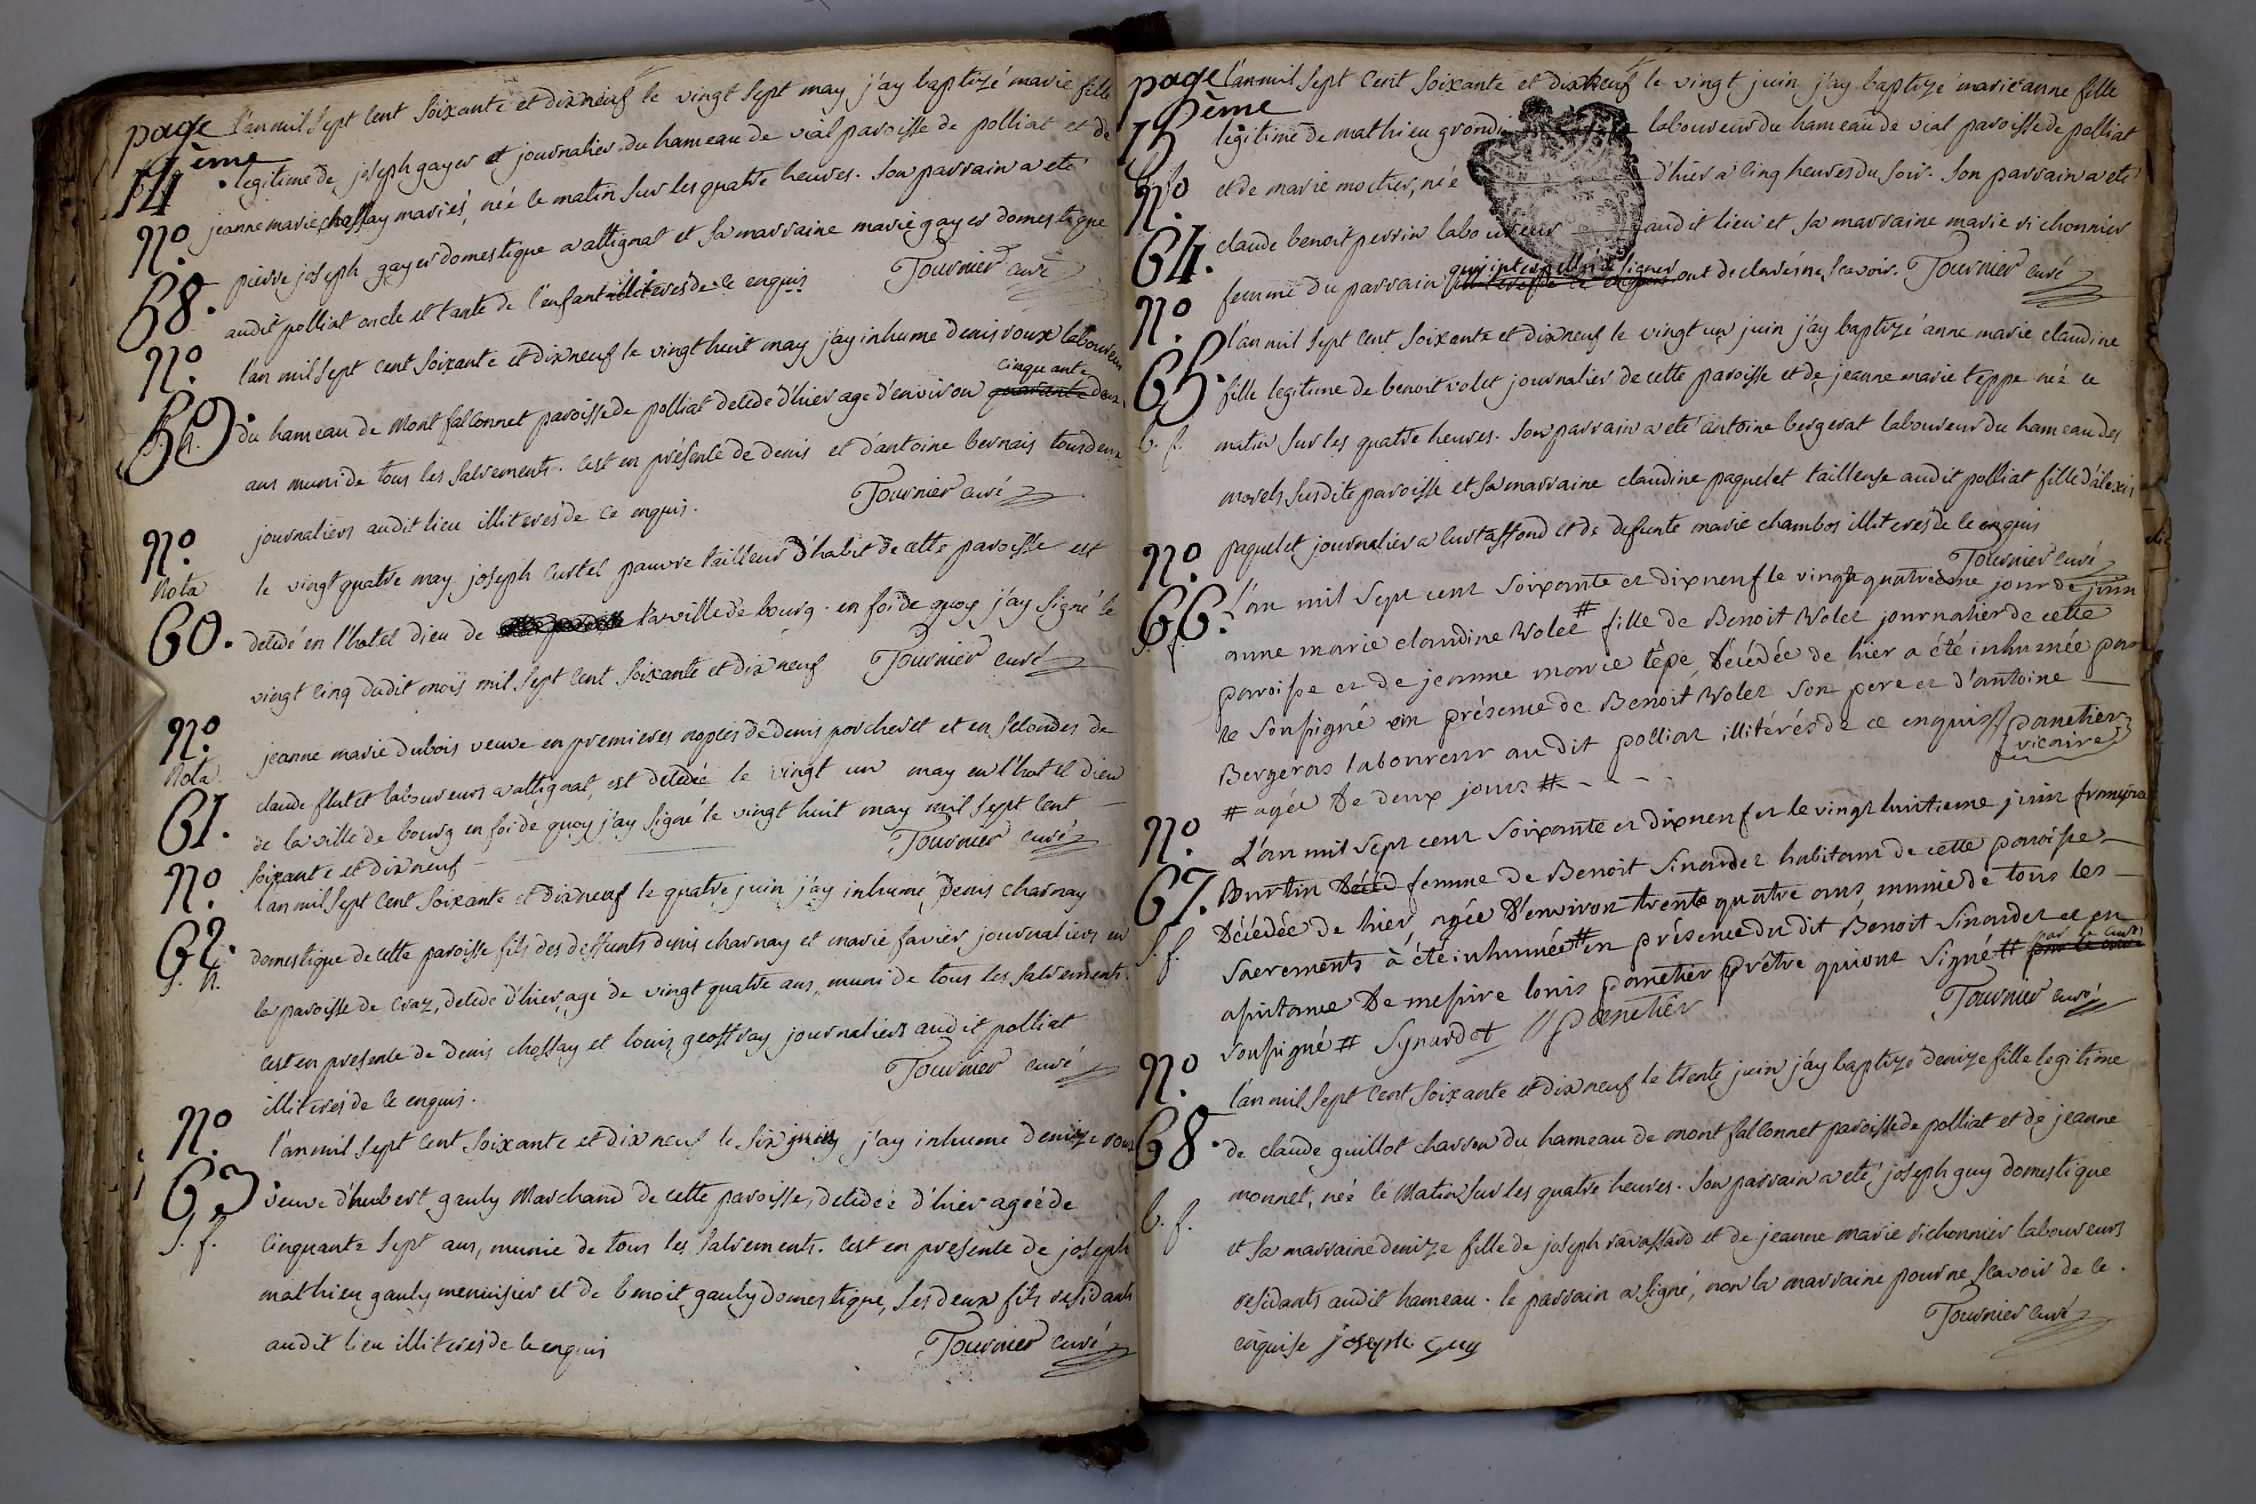 page
14ème
l'an mil sept cent soixante et dix neuf le vingt sept may j'ay baptizé marie fille
legitime de joseph gayer et journalier du hameau de vial paroisse de polliat et de
n.o
jeanne marie chossay mariés, née le matin sur les quatre heures. son parrain a eté
58.
pierre joseph gayer domestique a attignat et sa marraine marie gayer domestique
audit polliat oncle et tante de l'enfant illiterés de ce enquis Tournier curé
n.o
l'an mil sept cent soixante et dix neuf le vingt huit may j'ay inhume denis roux laboureur
cinquante
59.
s. h.
du hameau de mont falconnet paroisse de polliat decede d'hier age d'environ quarante deux
ans muni de tous les sacrements. cest en présence de denis et d'antoine bernais tous deux
journaliers audit lieu illiteres de ce enquis. Tournier curé
n.o
nota
le vingt quatre may joseph curtel pauvre tailleur d'habit de cette paroisse est
60.
decedé en l'hotel dieu de la ville de bourg. en foi de quoy j'ay signé le
vingt cinq dudit mois mil sept cent soixante et dix neuf Tournier curé
n.o
nota
jeanne marie dubois veuve en premieres noples de denis porcheret et en secondes de
61.
claude flutet laboureurs a attignat, est decedée le vingt un may en l'hotel dieu
de la ville de bourg en foi de quoy j'ay signé le vingt huit may mil sept cent
soixante et dix neuf Tournier curé
n.o
l'an mil sept cent soixante et dix neuf le quatre juin j'ay inhumé, denis charnay
62.
s. h.
domestique de cette paroisse fils des deffunts denis charnay et marie favier journaliers en
la paroisse de craz, decede d'hier, agé de vingt quatre ans, muni de tous les sacrements.
cest en presence de denis chossay et louis geoffray journaliers audit polliat
illiterés de ce enquis. Tournier curé
n.o
l'an mil sept cent soixante et dix neuf le six juin j'ay inhume denize roux
63
s. f.
veuve d'hubert gauly marchand de cette paroisse, decedée d'hier ageé de
cinquante sept ans, munie de tous les sacrements. cest en presence de joseph
mathieu gauly menuisier et de benoit gauly domestique, ses deux fils residants
audit lieu illiterés de ce enquis Tournier curé
page
15ème
l'an mil sept cent soixante et dix neuf le vingt juin j'ay baptizé marie anne fille
legitime de mathieu grond laboureur du hameau de vial paroisse de polliat
n.o
et de marie mocher, née d'hier a cinq heures du soir. son parrain a eté
64.
claude benoit perrin laboureur audit lieu et sa marraine marie richonnier
qui interpellés de signer
femme du parrain illiteres de ce enquis ont declaré ne scavoir. Tournier curé
n.o
l'an mil sept cent soixante et dix neuf le vingt un juin j'ay baptizé anne marie claudine
65.
fille legitime de benoit volet journalier de cette paroisse et de jeanne marie teppe née ce
b. f.
matin sur les quatre heures. son parrain a eté antoine bergerat laboureur du hameau des
morels susdite paroisse et sa marraine claudine paquelet tailleuse audit polliat fille d'alexis
paquelet journalier a curtaffond et de defunte marie chambos illiterés de ce enquis
Tournier curé
n.o
66.
s. f.
L'an mil sept cent soixante et dix neuf le vingt quatrieme jour de juin
anne marie claudine Wolet # fille de Benoit Wolet journalier de cette
paroisse et de jeanne marie têpe, décédée de hier a été inhumée par
le soussigné en présence de Benoit Wolet son pere et d'antoine
Bergeras laboureur au dit polliat illitérés de ce enquis panetier
vicaire
# agée de deux jours #
n.o
L'an mil sept cent soixante et dix neuf et le vingt huitieme juin françoise
67.
Burtin décéd femme de Benoit Sinardet habitant de cette paroisse
s. f.
décédée de hier, agée d'environ trente quatre ans, munie de tous les
sacrements à été inhumée # en présence du dit Benoit Sinardet et en
par le curé
assistance de messire louis panetier prêtre qui ont signé # par le curé
soussigné # Synardet panetier Tournier curé
n.o
l'an mil sept cent soixante et dix neuf le trente juin j'ay baptizé denize fille legitime
68.
de claude guillot charron du hameau de mont falconnet paroisse de polliat et de jeanne
b. f.
monnet, née le matin sur les quatre heures. son parrain a eté joseph guy domestique
et sa marraine denize fille de joseph ravassard et de jeanne marie richonnier laboureurs
residants audit hameau. le parrain a signé, non la marraine pour ne scavoir de ce.
enquise joseph guy Tournier curé